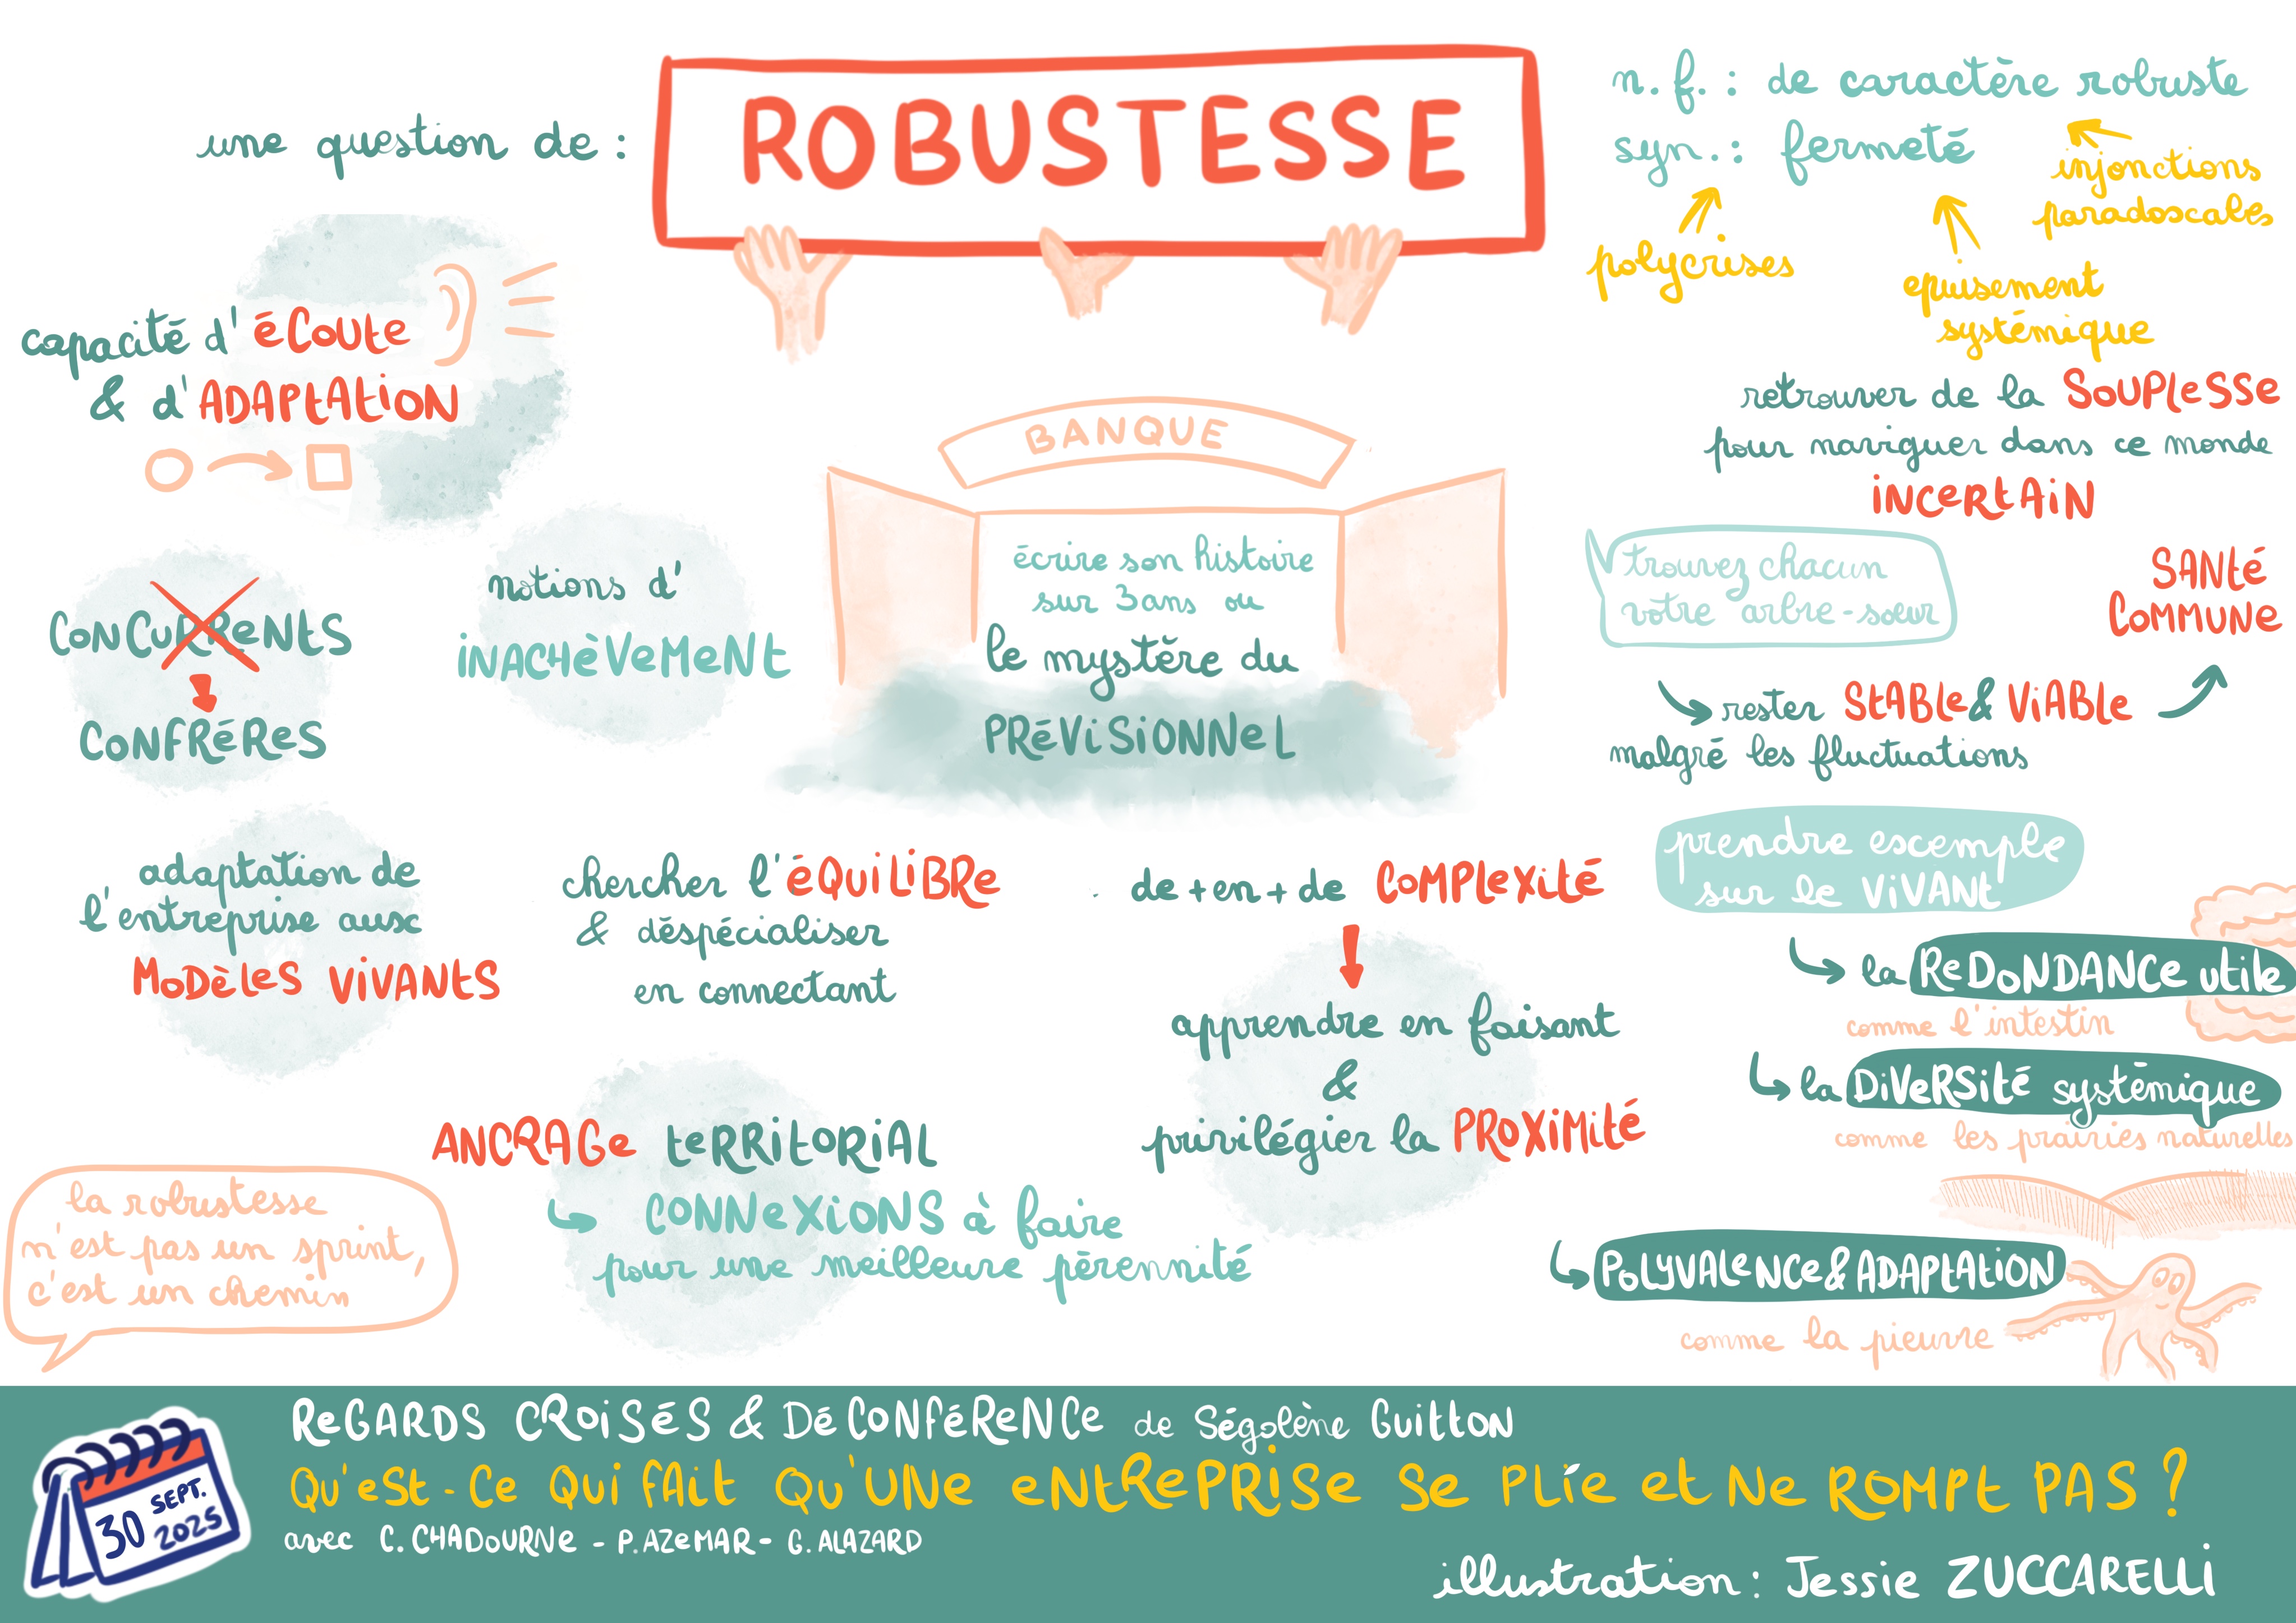 une question de :
ROBUSTESSE
n. f. : de caractère robuste
syn. : fermeté
injonctions
paradoxales
polycrises
epuisement
systémique
capacité d'écoute
& d'ADAPtAtiON
retrouver de la SOUPLeSSe
pour naviguer dans ce monde
iNCeRtAiN
BANQUE
écrire son histoire
sur 3ans ou
le mystère du
PRéViSiONNeL
CONCURReNtS
CONFRéReS
notions d'
iNACHèVeMeNt
trouvez chacun
votre arbre-soeur
SANté
COMMUNe
rester StABLe & ViABLe
malgré les fluctuations
adaptation de
l'entreprise aux
MODèLeS ViVANtS
chercher l'éQUiLiBRe
& déspécialiser
en connectant
de + en + de COMPLeXité
apprendre en faisant
&
privilégier la PROXiMité
prendre exemple
sur le ViVANt
la ReDONDANCe utile
comme l'intestin
la DiVeRSité systémique
comme les prairies naturelles
POLYVALeNCe & ADAPtAtiON
comme la pieuvre
ANCRAGe teRRitORiAL
CONNeXiONS à faire
pour une meilleure pérennité
la robustesse
n'est pas un sprint,
c'est un chemin
30 SEPT.
2025
ReGARDS CROiSéS & DéCONFéReNCe de Ségolène GUittON
QU'eSt-Ce QUi FAit QU'UNe eNtRePRiSe Se PLie et Ne ROMPt PAS ?
avec C. CHADOURNe - P. AZeMAR - G. ALAZARD
illustration : Jessie ZUCCARELLi